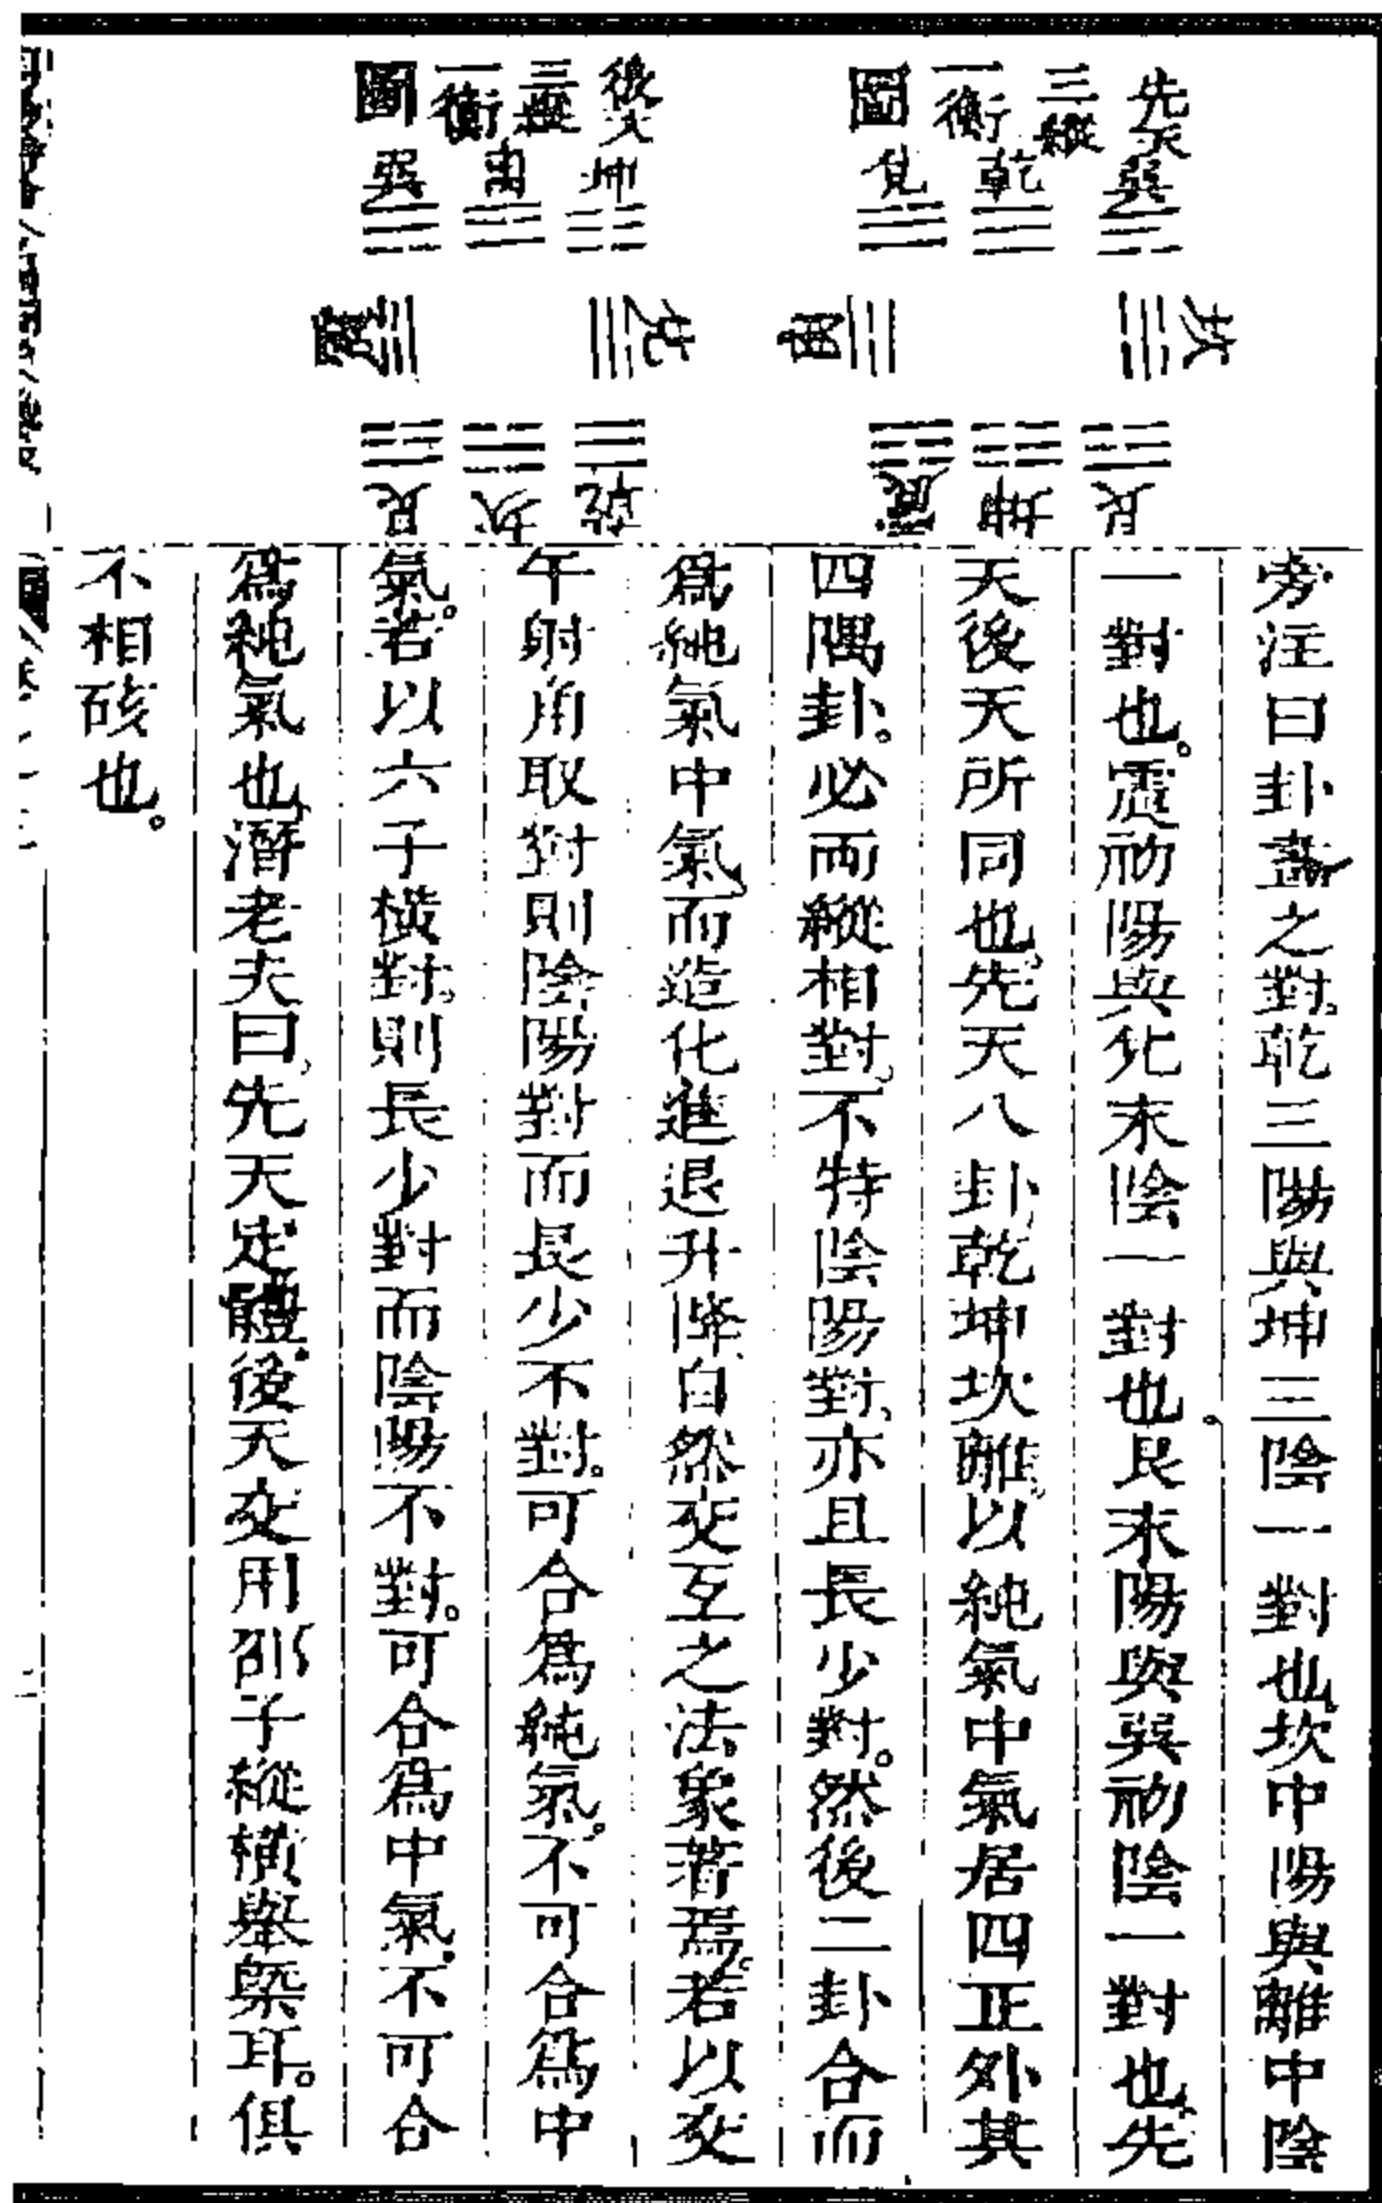 先天
三縱
一衡
圖
巽
乾
兌
坎
離
艮
坤
震
後天
三縱
一衡
圖
坤
離
巽
兌
震
乾
坎
艮
旁注曰卦畫之對乾三陽與坤三陰一對也坎中陽與離中陰
一對也。震初陽與兌末陰一對也。艮末陽與巽初陰一對也先
天後天所同也。先天八卦乾坤坎離以純氣中氣居四正外其
四隅卦。必兩縱相對。不特陰陽對亦且長少對。然後二卦合而
爲純氣中氣而造化進退升降自然交互之法象著焉。若以交
午射角取對則陰陽對而長少不對。可合爲純氣。不可合爲中
氣。若以六子橫對。則長少對而陰陽不對。可合爲中氣。不可合
爲純氣也潛老夫曰先天定體後天交用邵子縱橫舉槩耳。俱
不相硋也。